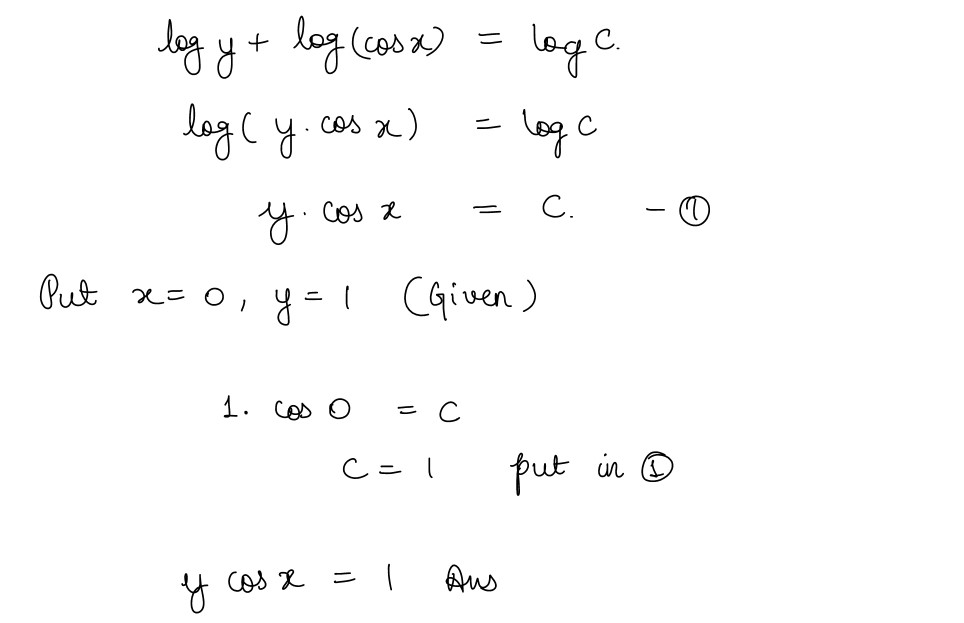 log y + log(cos x) = log C.
log( y · cos x) = log c
y · cos x = C. – ①
Put x = 0, y = 1 (Given)
1. cos 0 = c
C = 1 put in ①
y cos x = 1 Ans